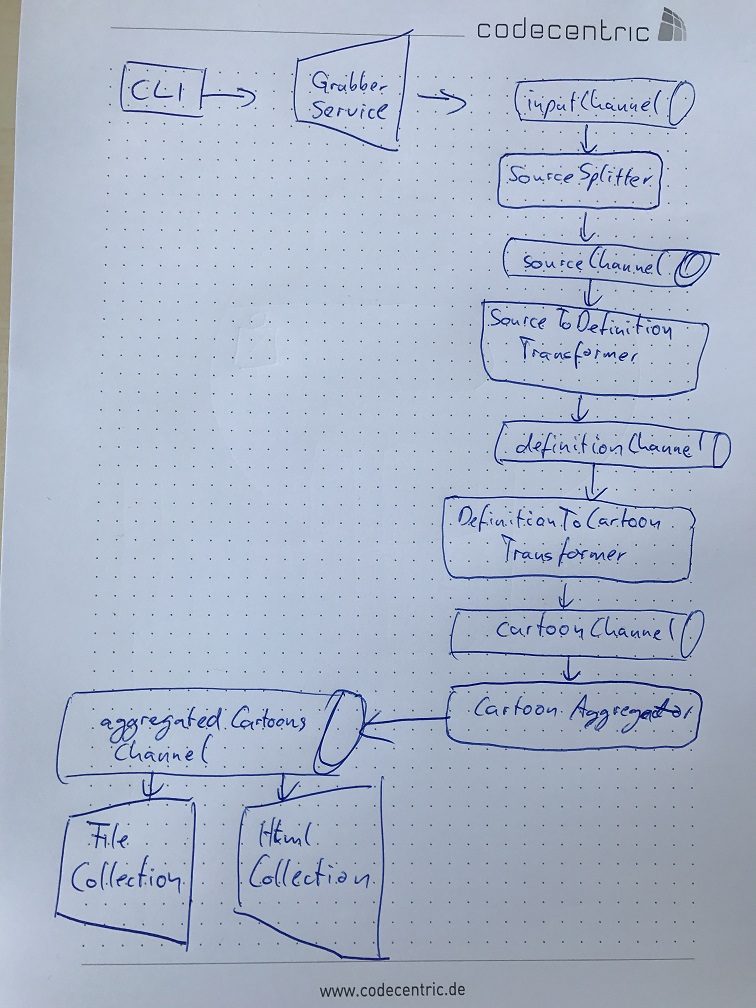 codecentric
CLI
Grabber
Service
inputChannel
SourceSplitter
sourceChannel
Source ToDefinition
Transformer
definitionChannel
DefinitionToCartoon
Transformer
cartoonChannel
Cartoon Aggregator
aggregated Cartoons
Channel
File
Collection
Html
Collection
www.codecentric.de